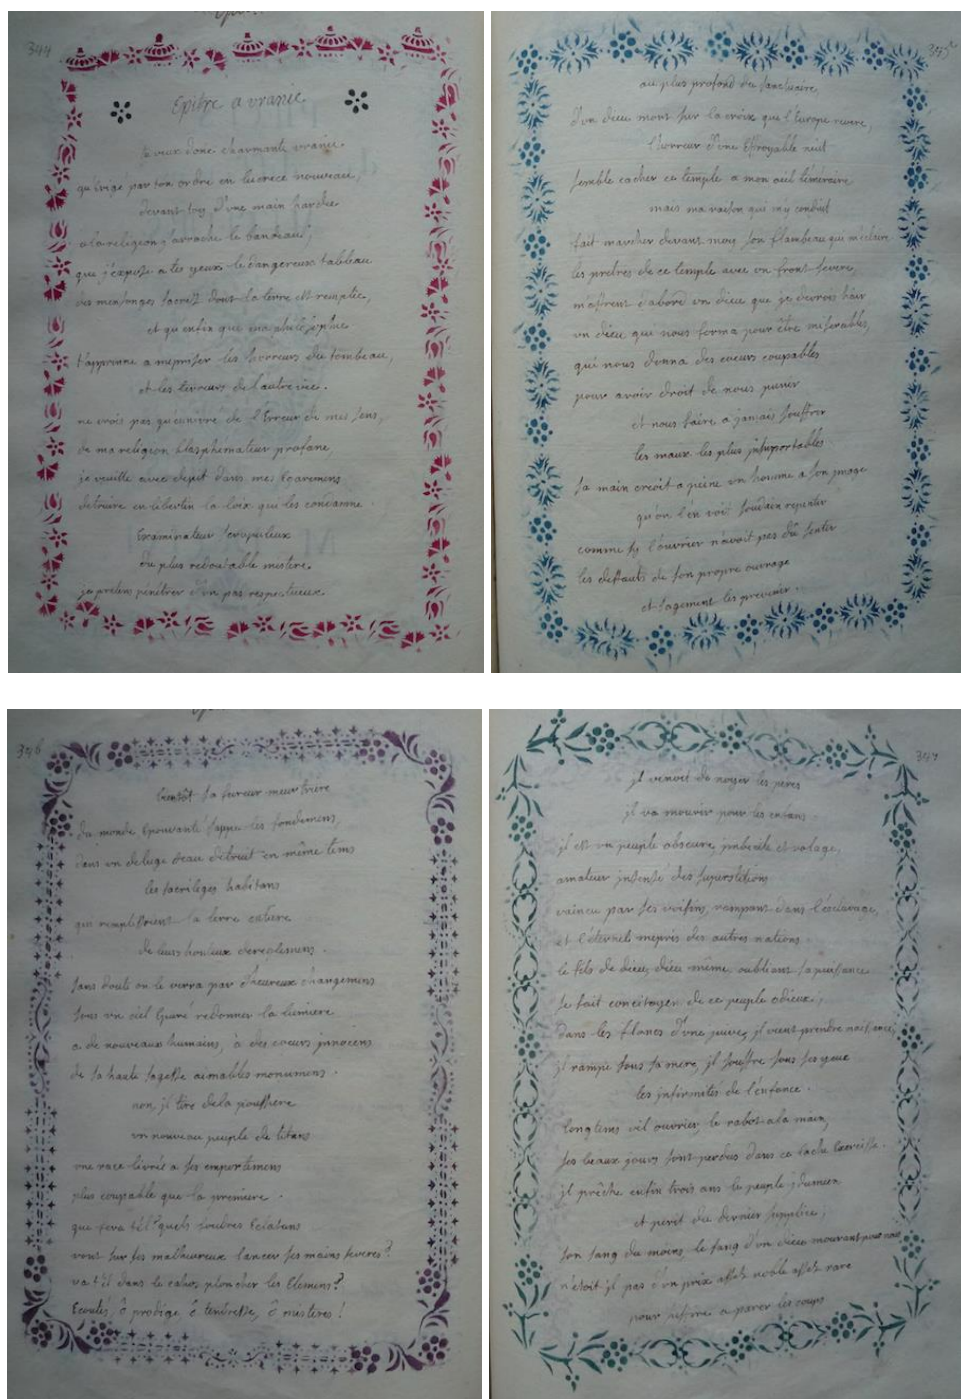 344
Epitre a vranie
tu veux donc charmante vranie
qu'erigé par ton ordre en lucrece nouveau,
devant toy d'une main hardie
a la religion j'arrache le bandeau,
que j'expose a tes yeux le dangereux tableau
des mensonges sacrez dont la terre est remplie,
et qu'enfin ma philosophie
t'apprenne a mepriser les horreurs du tombeau,
et les terreurs de l'autre vie.
ne crois pas qu'enivré de l'Erreur de mes sens,
de ma religion blasphemateur profane
je veuille avec depit dans mes Egaremens
detruire en libertin la loix qui les condamne
Examinateur scrupuleux
du plus redoutable mistere,
je prétens pénétrer d'un pas respectueux
345
au plus profond du sanctuaire,
d'un dieu mort sur la croix que l'Europe revere,
l'horreur d'une Effroyable nuit
semble cacher ce temple a mon oeil téméraire
mais ma raison qui m'y conduit
fait marcher devant moy son flambeau qui m'eclaire
les pretres de ce temple avec un front severe,
m'offrent d'abord un dieu que je devrois haïr
un dieu qui nous forma pour être miserables,
qui nous donna des coeurs coupables
pour avoir droit de nous punir
et nous faire a jamais souffrir
les maux les plus insuportables
sa main creoit a peine un homme a son jmage
qu'on l'en voit soudain repentir
comme sy l'ouvrier n'avoit pas dû sentir
les deffauts de son propre ouvrage
et sagement les prevenir.
346
bientôt sa fureur meurtriere
du monde Epouvanté sappe les fondemens,
dans un deluge d'eau détruit en même tems
les sacrileges habitans
qui remplissoient la terre entiere
de leurs honteux dereglemens.
sans doute on le verra par d'heureux changemens
sous un ciel Epuré redonner la lumiere
a de nouveaux humains, à des coeurs jnnocens
de sa haute sagesse aimables monumens.
non jl tire de la poussiere
un nouveau peuple de titans
une race livrée a ses emportemens
plus coupable que la premiere.
que fera t'il? quels foudres Eclatans
vont sur ses malheureux lancer ses mains severes?
va t'il dans le cahos plonger les Elemens?
Ecoutés, ô prodige ô tendresse, ô misteres!
347
jl venoit de noyer les peres
jl va mourir pour les enfans
jl est un peuple obscure, jmbecile et volage,
amateur jnsensé des superstitions
vaincu par ses voisins, rampant dans l'esclavage,
et l'éternel mepris des autres nations
le fils de dieu, dieu même, oubliant sa puissance
se fait concitoyen de ce peuple odieux,
dans les flancs d'une juive, jl vient prendre naissance,
jl rampe sous sa mere, jl souffre sous ses yeux
les jnfirmités de l'enfance.
longtems vil ouvrier, le rabot a la main,
ses beaux jours sont perdus dans ce lache exercice.
jl prêche enfin trois ans le peuple jdumeen
et périt du dernier supplice,
son sang du moins le sang d'un dieu mourant pour nous
n'étoit jl pas d'un prix assés noble assés rare
pour a parer les coups